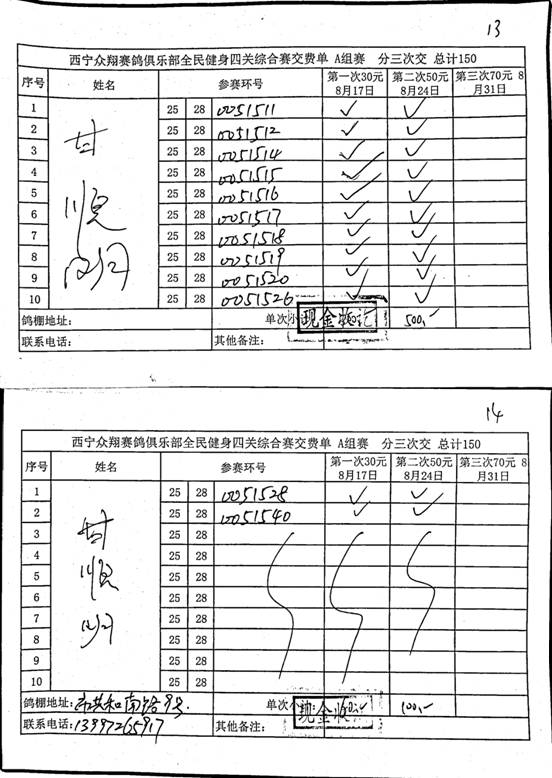 13
西宁众翔赛鸽俱乐部全民健身四关综合赛交费单 A组赛 分三次交 总计150
序号 姓名 参赛环号 第一次30元 8月17日 第二次50元 8月24日 第三次70元 8月31日
1 25 28 0051511 ✓ ✓
2 25 28 0051512 ✓ ✓
3 25 28 0051514 ✓ ✓
4 25 28 0051515 ✓ ✓
5 25 28 0051516 ✓ ✓
6 25 28 0051517 ✓ ✓
7 25 28 0051518 ✓ ✓
8 25 28 0051519 ✓ ✓
9 25 28 0051520 ✓ ✓
10 25 28 0051526 ✓ ✓
甘顺
鸽棚地址: 单次小 现金收讫 500,-
联系电话: 其他备注:
14
西宁众翔赛鸽俱乐部全民健身四关综合赛交费单 A组赛 分三次交 总计150
序号 姓名 参赛环号 第一次30元 8月17日 第二次50元 8月24日 第三次70元 8月31日
1 25 28 0051528 ✓ ✓
2 25 28 0051540 ✓ ✓
3 25 28
4 25 28
5 25 28
6 25 28
7 25 28
8 25 28
9 25 28
10 25 28
甘顺
鸽棚地址:市共和南路9号. 单次 现金收 100,-
联系电话:13997265917 其他备注: